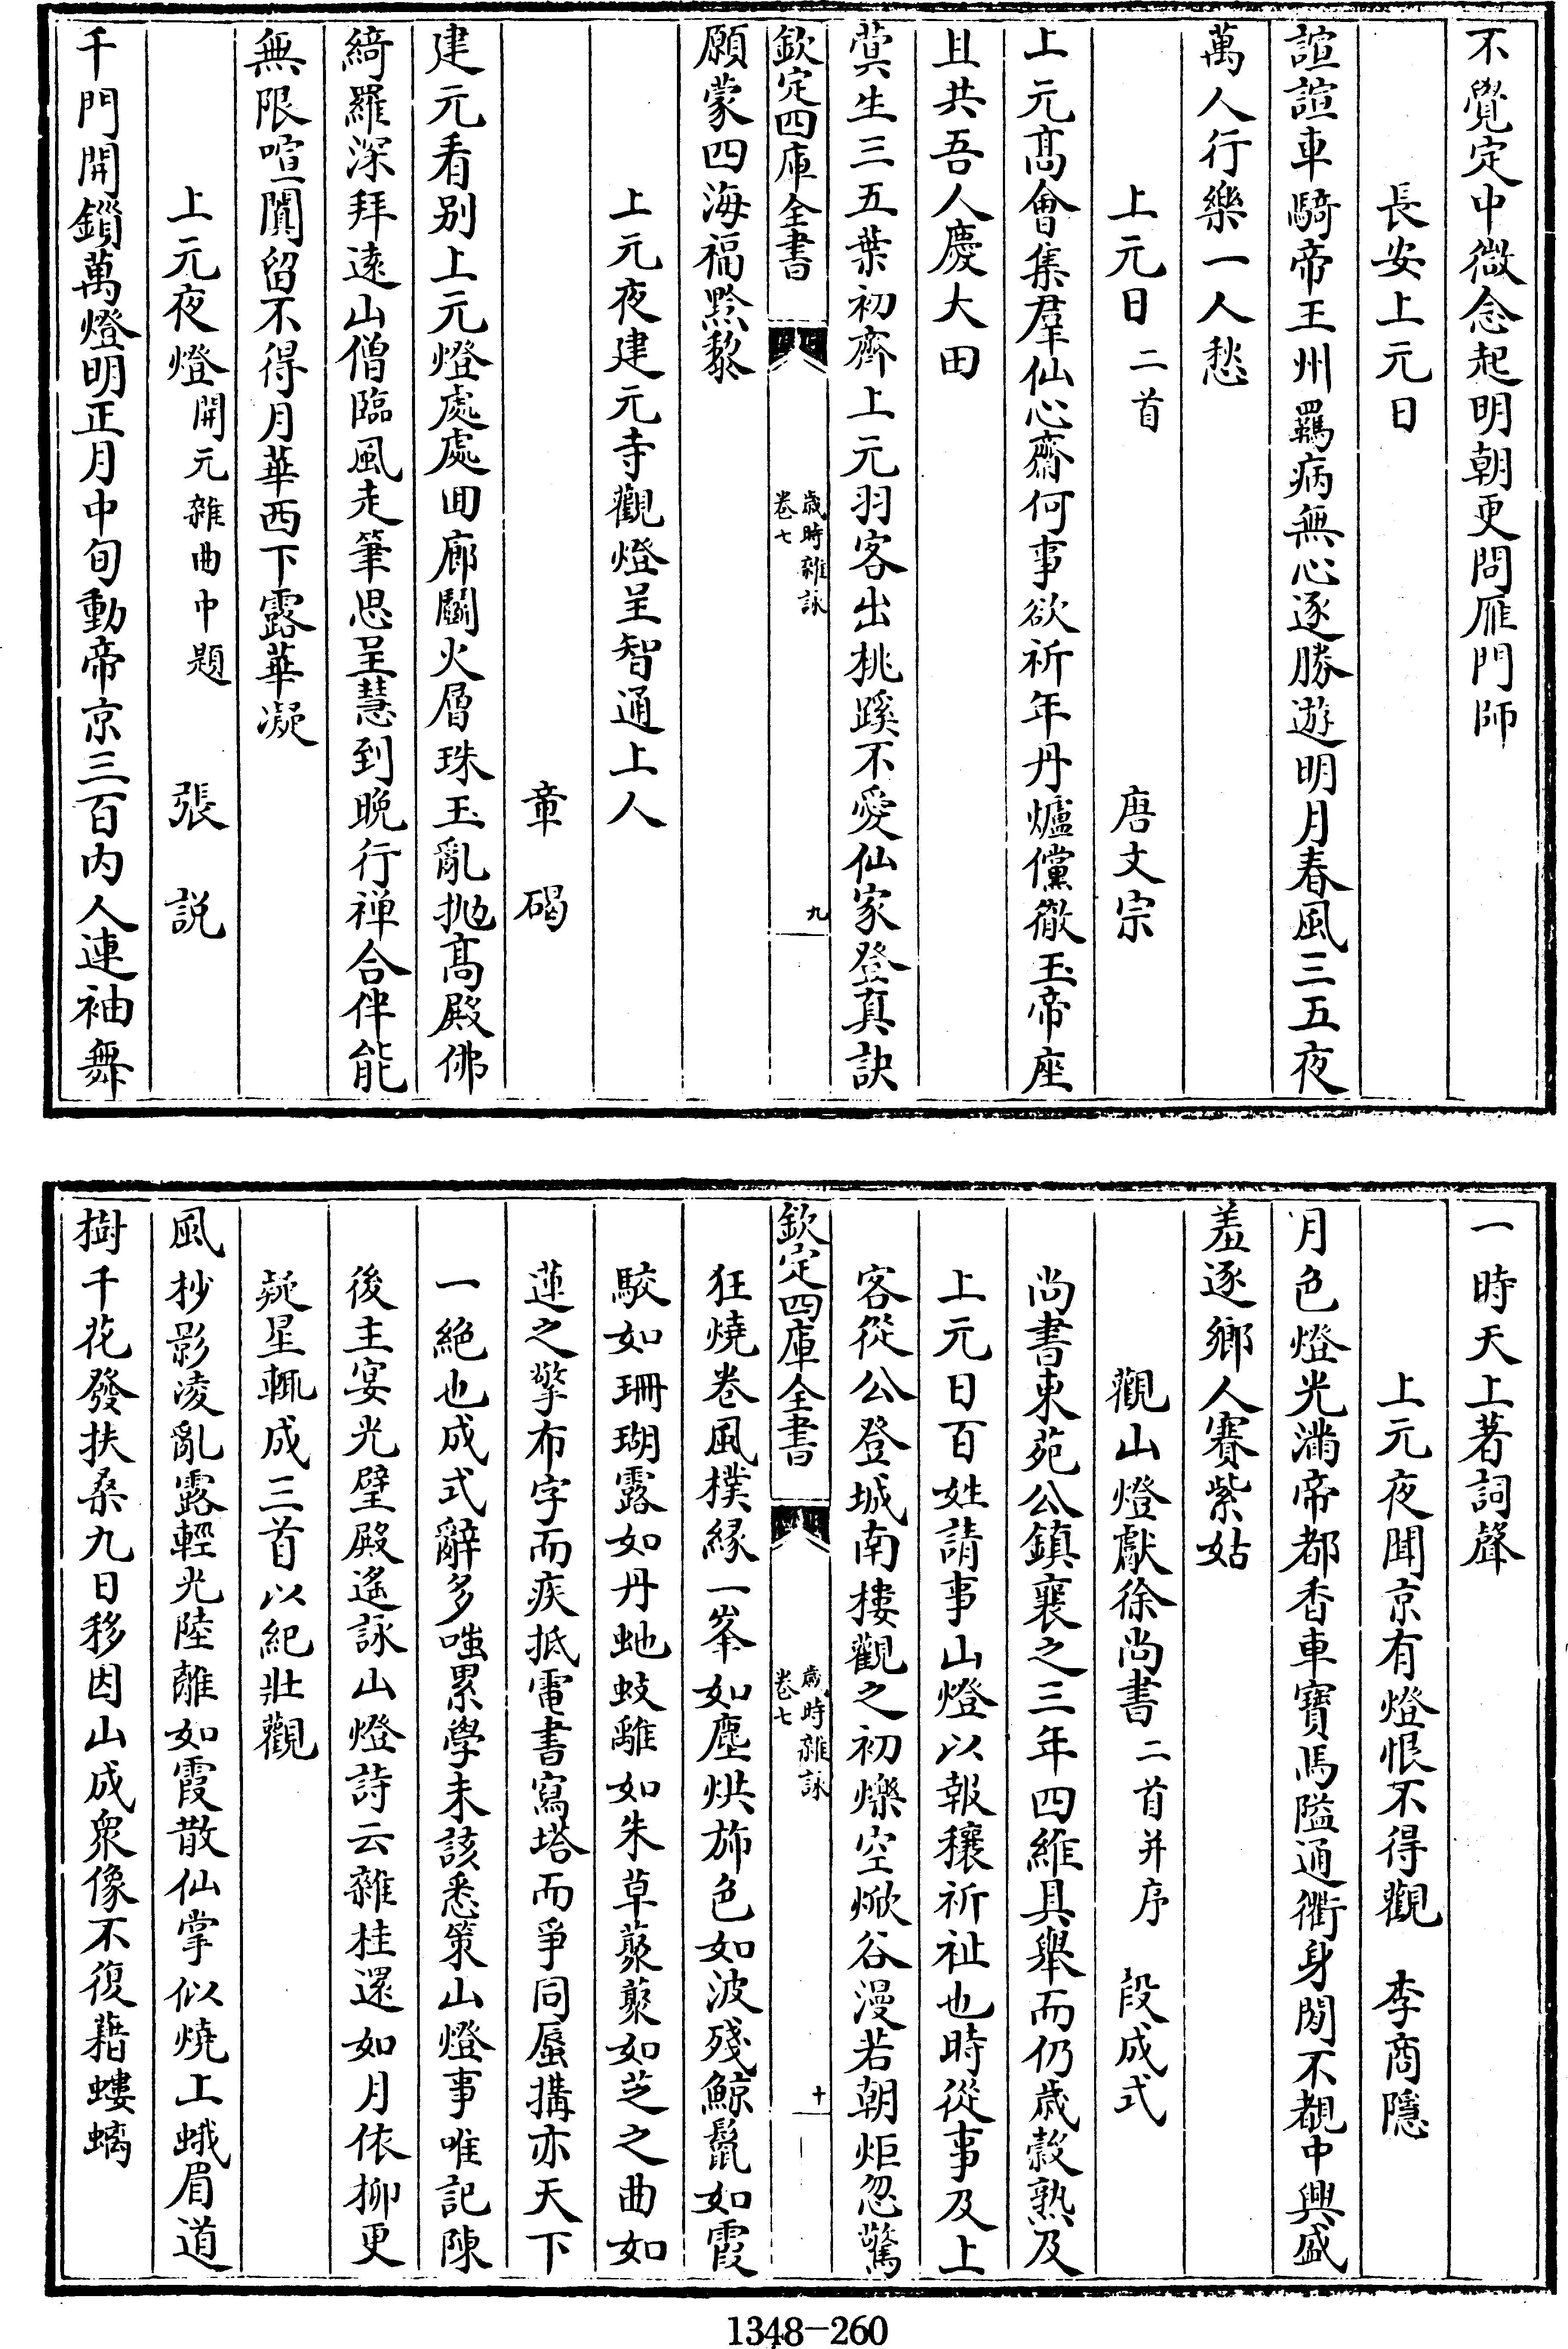 不覺定中微念起明朝更問雁門師
長安上元日
諠諠車騎帝王州羈病無心逐勝遊明月春風三五夜
萬人行樂一人愁
上元日二首　唐文宗
上元髙㑹集羣仙心齋何事欲祈年丹爐儻徹玉帝座
且共吾人慶大田
蓂生三五葉初齊上元羽客出桃蹊不愛仙家登真訣
欽定四庫全書
歳時雜詠
卷七
九
願蒙四海福黔黎
上元夜建元寺觀燈呈智通上人
章碣
建元看别上元燈處處囬廊鬭火層珠玉亂抛髙殿佛
綺羅深拜逺山僧臨風走筆思呈慧到晩行禅合伴能
無限喧闐留不得月華西下露華凝
上元夜燈開元雜曲中題　張説
千門開鎖萬燈明正月中旬動帝京三百内人連袖舞
一時天上著詞聲
上元夜聞京有燈恨不得觀　李商隱
月色燈光滿帝都香車寳馬隘通衢身閒不覩中興盛
羞逐鄉人賽紫姑
觀山燈獻徐尚書二首并序　段成式
尚書東苑公鎮襄之三年四維具舉而仍歳穀熟及
上元日百姓請事山燈以報穰祈祉也時從事及上
客從公登城南樓觀之初爍空焮谷漫若朝炬忽驚
欽定四庫全書
歳時雜詠
卷七
十
狂燒卷風撲緣一峯如塵烘旆色如波殘鯨鬛如霞
駮如珊瑚露如丹虵蛟離如朱草藂藂如芝之曲如
蓮之擎布字而疾抵電書寫塔而爭同蜃搆亦天下
一絶也成式辭多嗤累學未該悉策山燈事唯記陳
後主宴光璧殿遙詠山燈詩云雜桂還如月依柳更
疑星輒成三首以紀壯觀
風杪影凌亂露輕光陸離如霞散仙掌似燒上蛾眉道
樹千花發扶桑九日移因山成衆像不復藉螻螭
1348-260